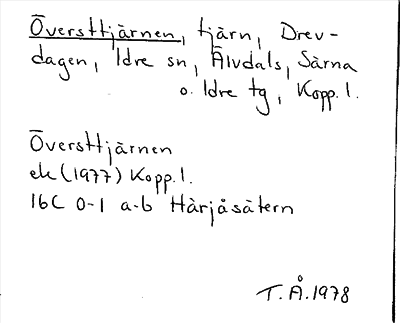 Översttjärnen, tjärn, Drev-
dagen, Idre sn, Älvdals, Särna
o. Idre tg, Kopp. l.
Översttjärnen
ek (1977) Kopp. l.
16C 0-1 a-b Härjåsätern
T.Å. 1978